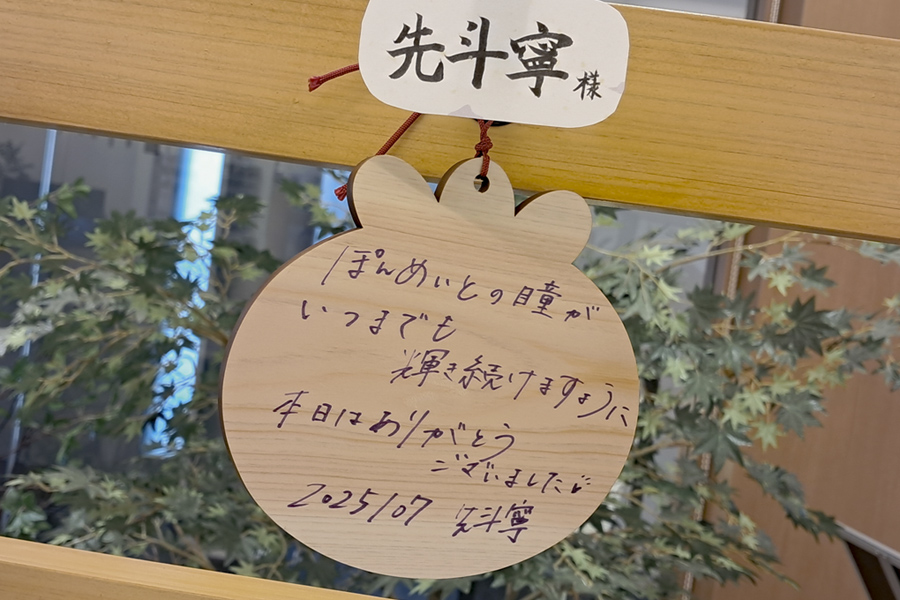 先斗寧様
ぽんめいとの瞳が
いつまでも
輝き続けますように
本日はありがとう
ございました
2025/07 先斗寧